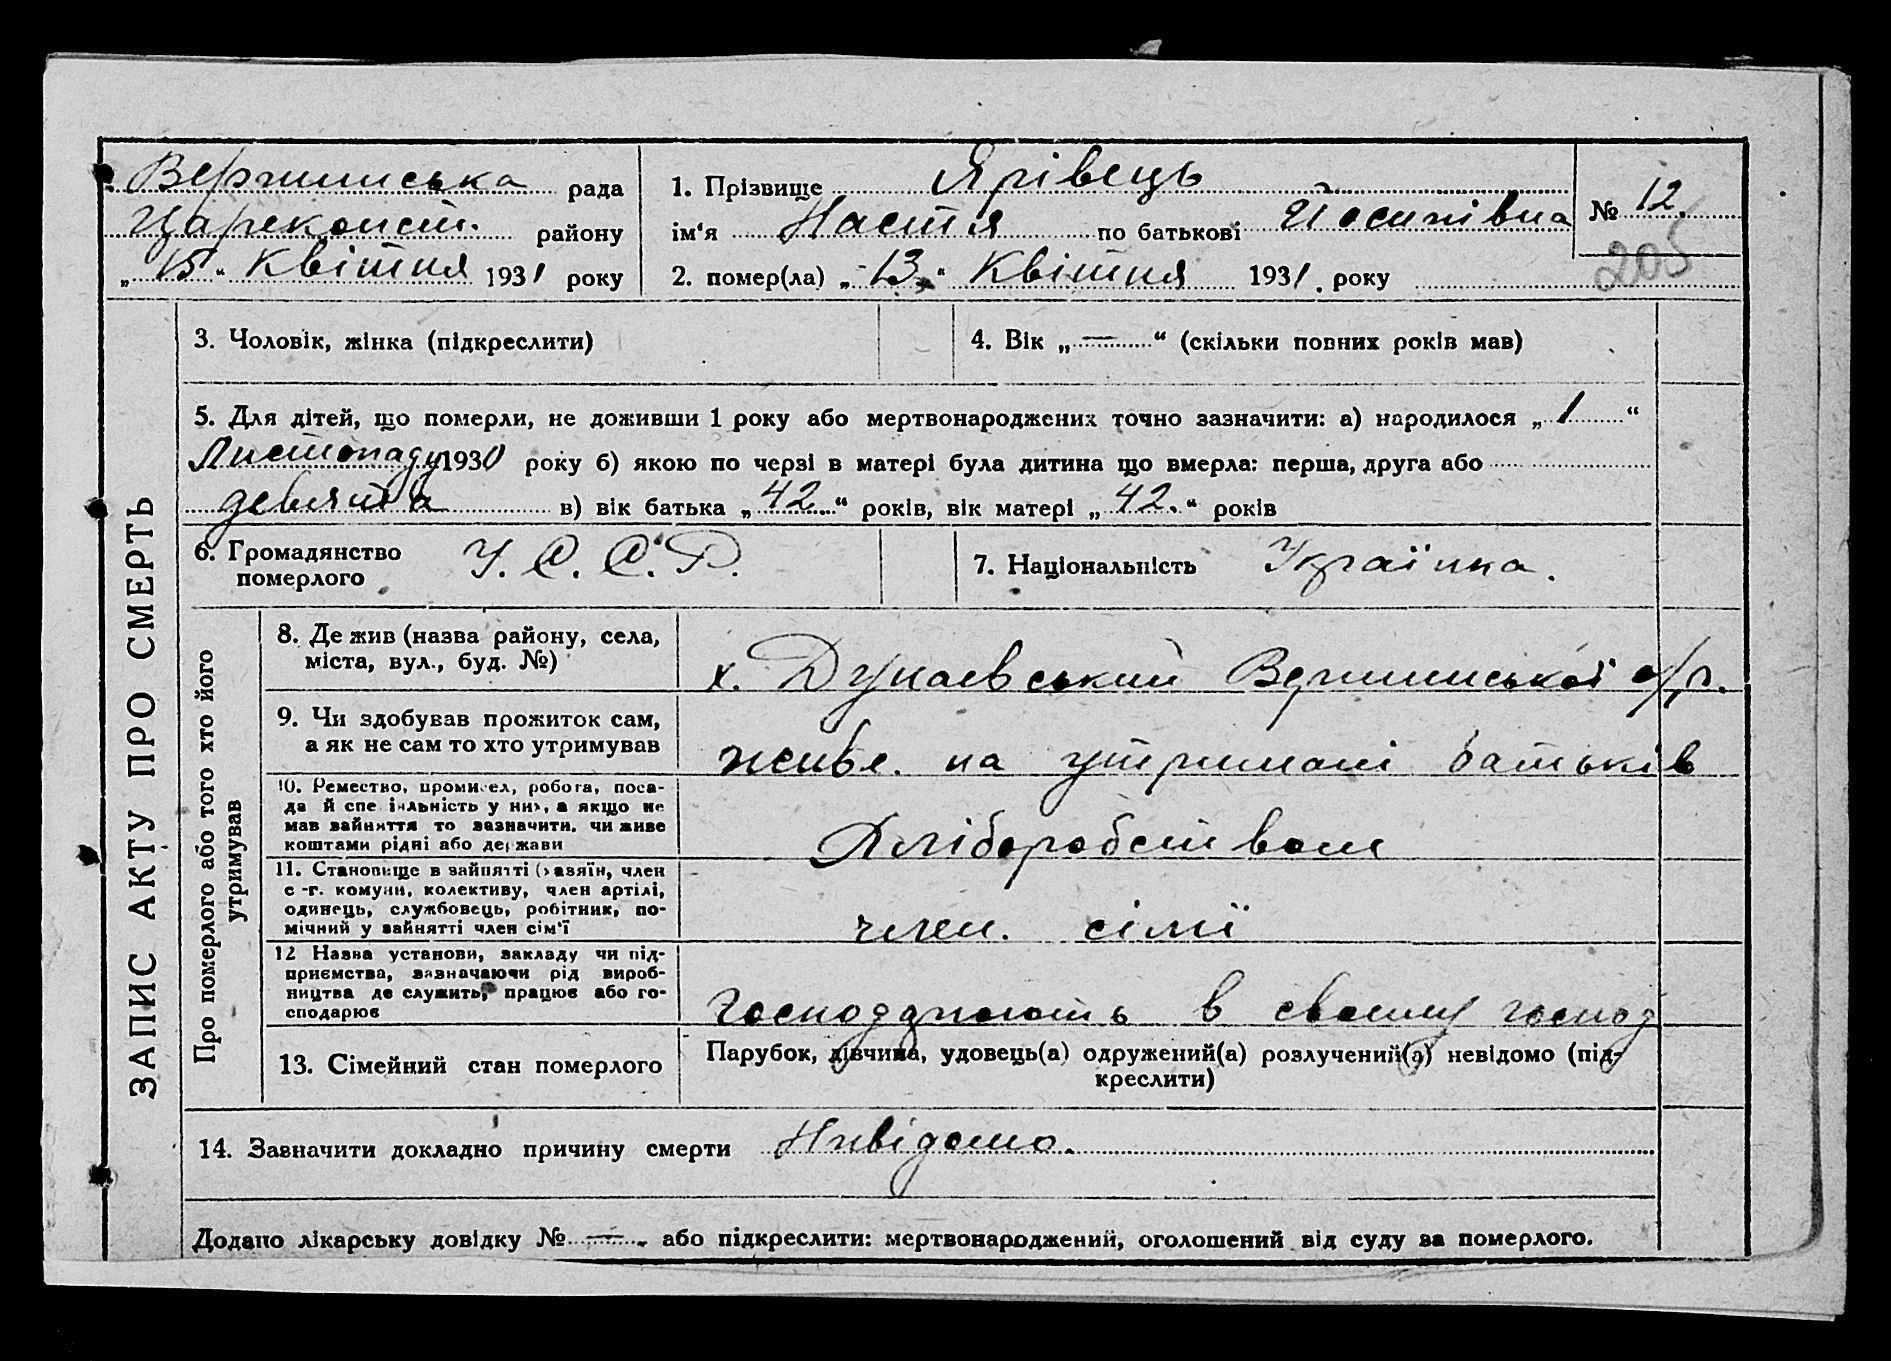 Вершинська рада
Царекопст. району
„15“ Квітня 1931 року
1. Прізвище Ярівець
ім‘я Настя по батькові Йосипівна
2. помер(ла) „13“ Квітня 1931. року
№ 12.
205
ЗАПИС АКТУ ПРО СМЕРТЬ
3. Чоловік, жінка (підкреслити)
4. Вік „—“ (скільки повних років мав)
5. Для дітей, що померли, не доживши 1 року або мертвонароджених точно зазначити: а) народилося „1“
Листопаду 1930 року б) якою по черзі в матері була дитина що вмерла: перша, друга або
девята в) вік батька „42.“ років, вік матері „42.“ років
6. Громадянство
померлого
У. С. С. Р.
7. Національність Українка.
Про померлого або того хто його
утримував
8. Де жив (назва району, села,
міста, вул., буд. №)
х. Дунаєвський Вершинської с/р.
9. Чи здобував прожиток сам,
а як не сам то хто утримував
живе. на утримані батьків
10. Ремество, промисел, робота, поса-
да й спеціяльність у них, а якщо не
мав зайняття то зазначити, чи живе
коштами рідні або держави
Хліборобством
11. Становище в зайнятті (хазяїн, член
с-г. комуни, колективу, член артілі,
одинець, службовець, робітник, по-
мічний у зайнятті член сім‘ї
член. сімї
12 Назва установи, закладу чи під-
приємства, зазначаючи рід вироб-
ництва де служить, працює або го-
сподарює
господарюють в своєму господ
13. Сімейний стан померлого
Парубок, дівчина, удовець(а) одружений(а) розлучений(а) невідомо (під-
креслити)
14. Зазначити докладно причину смерти Нивідомо.
Додано лікарську довідку № — або підкреслити: мертвонароджений, оголошений від суду за померлого.